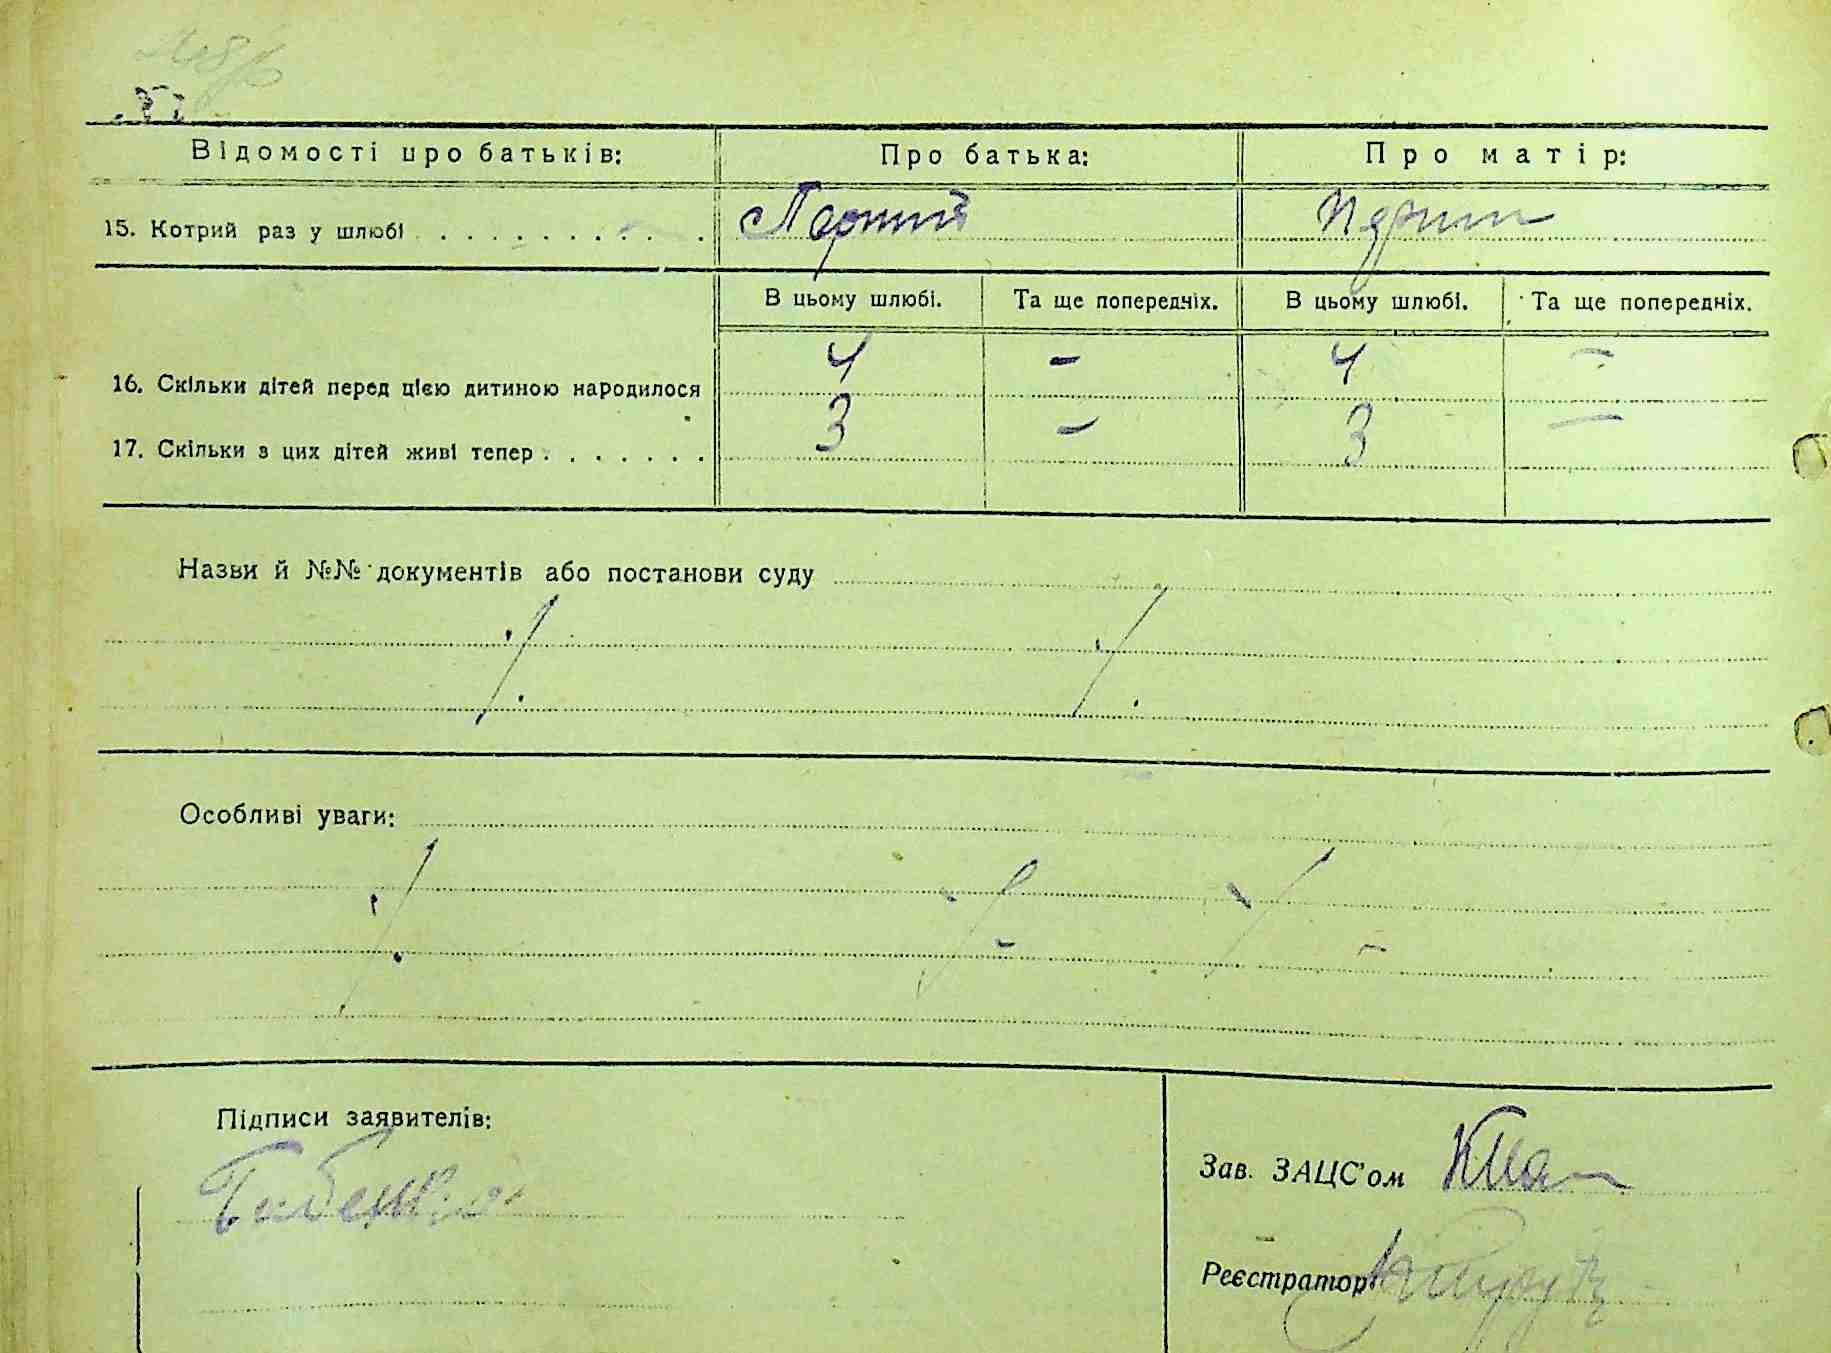 Відомості про батьків: Про батька: Про матір:
15. Котрий раз у шлюбі . . . . . . . . . . Первий
В цьому шлюбі. Та ще попередніх. В цьому шлюбі. Та ще попередніх.
16. Скільки дітей перед цією дитиною народилося 4 – 4 –
17. Скільки з цих дітей живі тепер . . . . . . . 3 – 3 –
Назви й №№ документів або постанови суду
Особливі уваги:
Підписи заявителів:
Зав. ЗАЦС'ом
Реєстратор